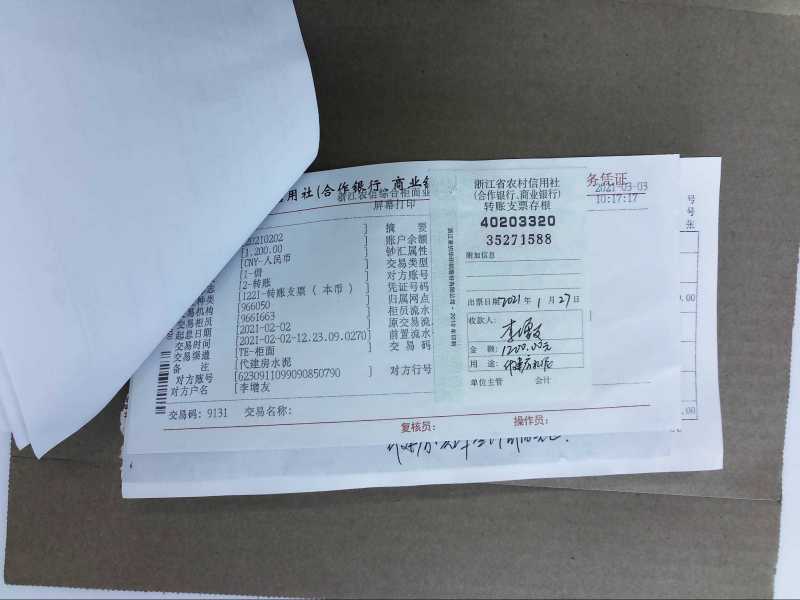 用社(合作银行、商业银
务凭证
浙江农信综合柜面业
屏幕打印
2021-03-03
10:17:17
20210202 ] 摘 要
1,200.00 ] 账户余额
[CNY-人民币 ] 钞汇属性
[1-借 ] 交易类型
[2-转账 ] 对方账号
种类 [1221-转账支票(本币) ] 凭证号码
交易机构 [966050 ] 归属网点
交易柜员 [9661663 ] 柜员流水
起息日期 [2021-02-02 ] 原交易流
交易时间 [2021-02-02-12.23.09.0270] 前置流水
交易渠道 [TE-柜面 ] 交 易 码
备 注 [代建房水泥
对方账号 [6230911099090850790 ] 对方行号
对方户名 [李增友
交易码:9131 交易名称:
复核员: 操作员:
浙江省农村信用社
(合作银行、商业银行)
转账支票存根
40203320
35271588
附加信息
出票日期2021年1月27日
收款人:
李增友
金 额:1200.00元
用 途:代建房水泥
单位主管 会计
号
号
张
0.00
.00